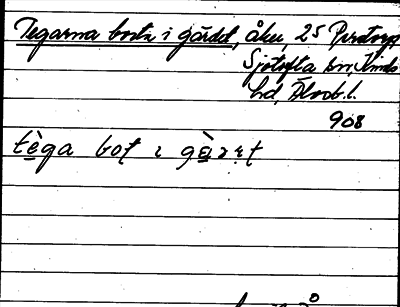 Tegarna borta i gärdet, åker, 25 Perstorp
Sjötofta sn, Kinds
hd, Älvsb. l.
908
tèga bot ɩ gèꞛət